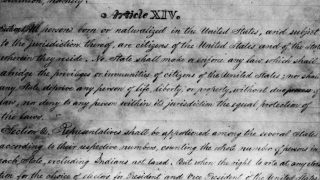 Article XIV.
Section 1. All persons born or naturalized in the United States, and subject
to the jurisdiction thereof, are citizens of the United States and of the State
wherein they reside. No State shall make or enforce any law which shall
abridge the privileges or immunities of citizens of the United States; nor shall
any State deprive any person of life, liberty, or property, without due process of
law, nor deny to any person within its jurisdiction the equal protection of
the laws.
Section 2. Representatives shall be apportioned among the several States
according to their respective numbers, counting the whole number of persons in
each State, excluding Indians not taxed. But when the right to vote at any
election for the choice of electors for President and Vice President of the United